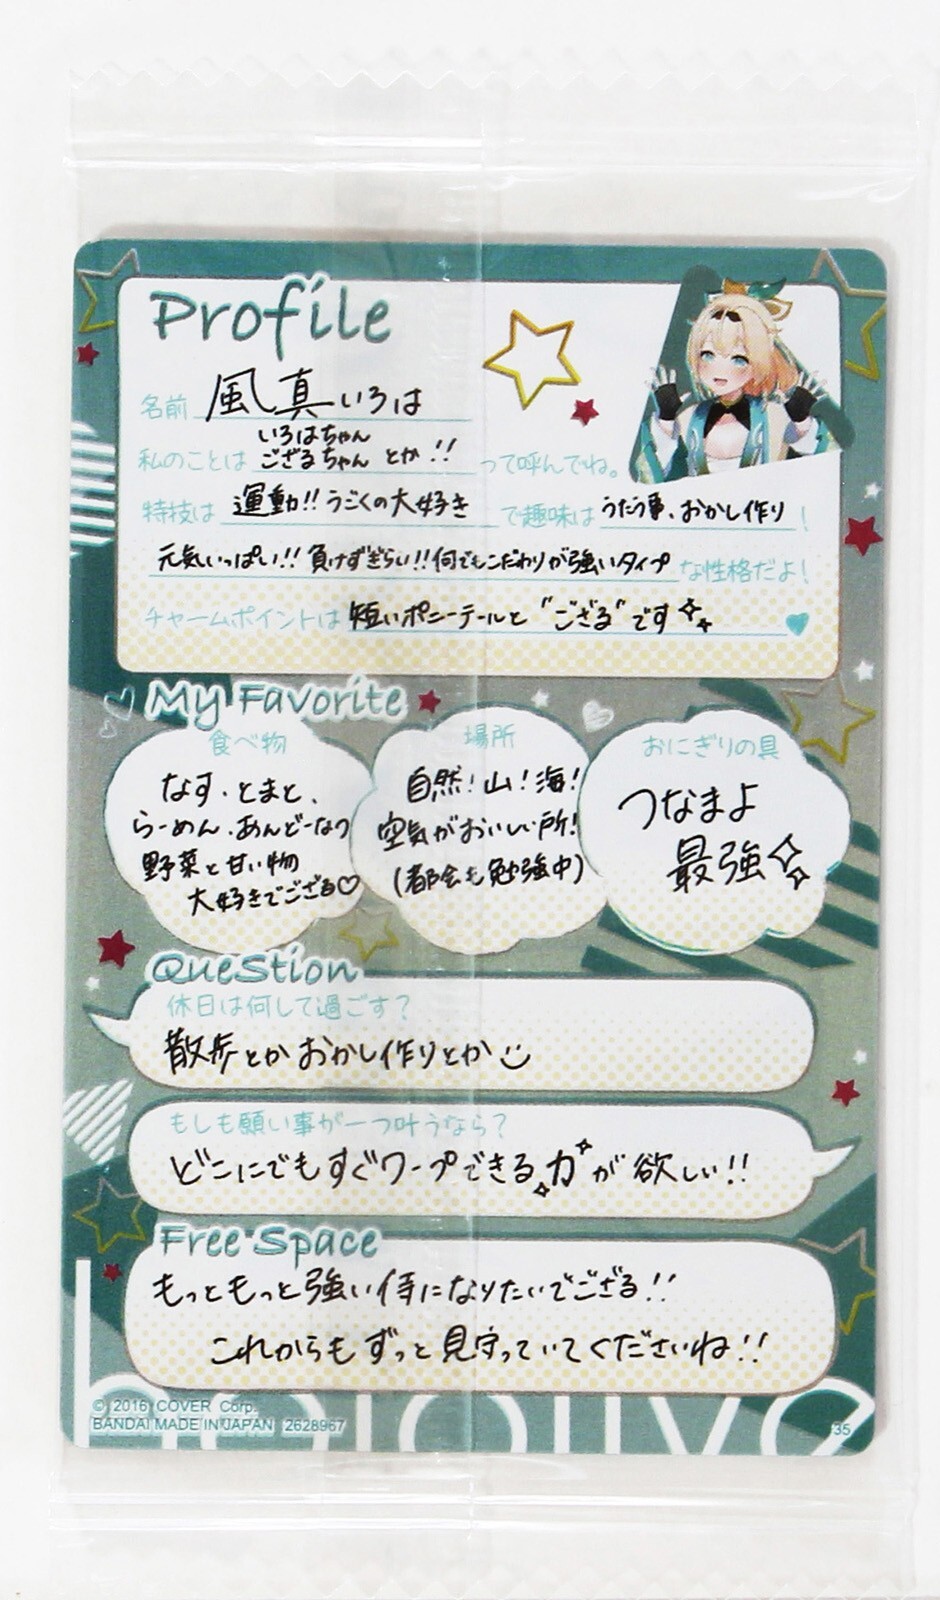 Profile
名前 風真いろは
私のことは いろはちゃん ござるちゃん とか!! って呼んでね。
特技は 運動!! うごくの大好き で趣味は うたう事、おかし作り !
元気いっぱい!! 負けずぎらい!! 何でもこだわりが強いタイプ な性格だよ!
チャームポイントは 短いポニーテールと "ござる"です
My Favorite
食べ物
なす・とまと、
らーめん、あんどーなつ
野菜と甘い物
大好きでござる♡
場所
自然!山!海!
空気がおいしい所!
(都会も勉強中)
おにぎりの具
つなまよ
最強
Question
休日は何して過ごす?
散歩とかおかし作りとか
もしも願い事が一つ叶うなら?
どこにでもすぐワープできる力が欲しい!!
Free Space
もっともっと強い侍になりたいでござる!!
これからもずっと見守っていてくださいね!!
hololive
© 2016 COVER Corp.
BANDAI MADE IN JAPAN 2628967
35